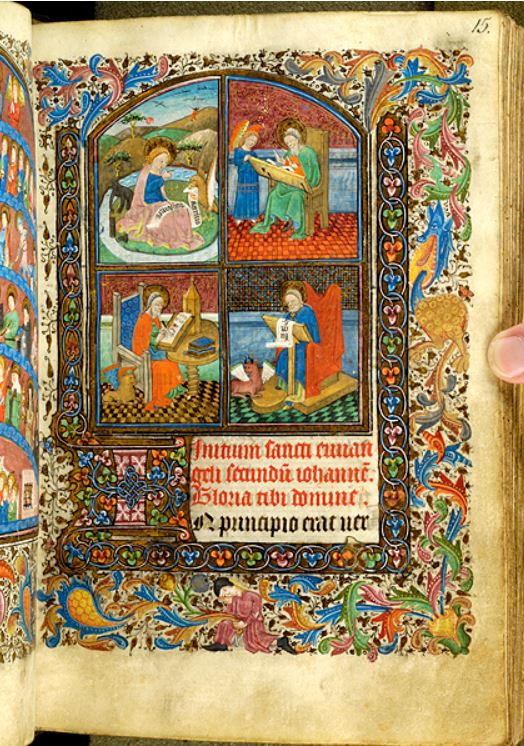 15.
Initium sancti euuan
geli secundũ iohannẽ.
Gloria tibi domine
IN principio erat uer